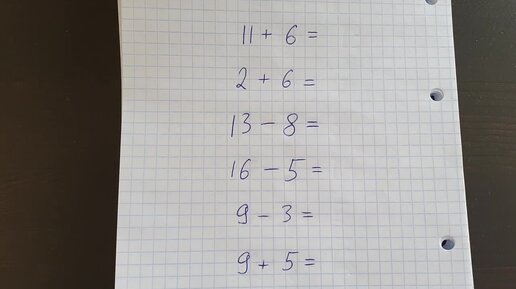 11 + 6 =
2 + 6 =
13 - 8 =
16 - 5 =
9 - 3 =
9 + 5 =